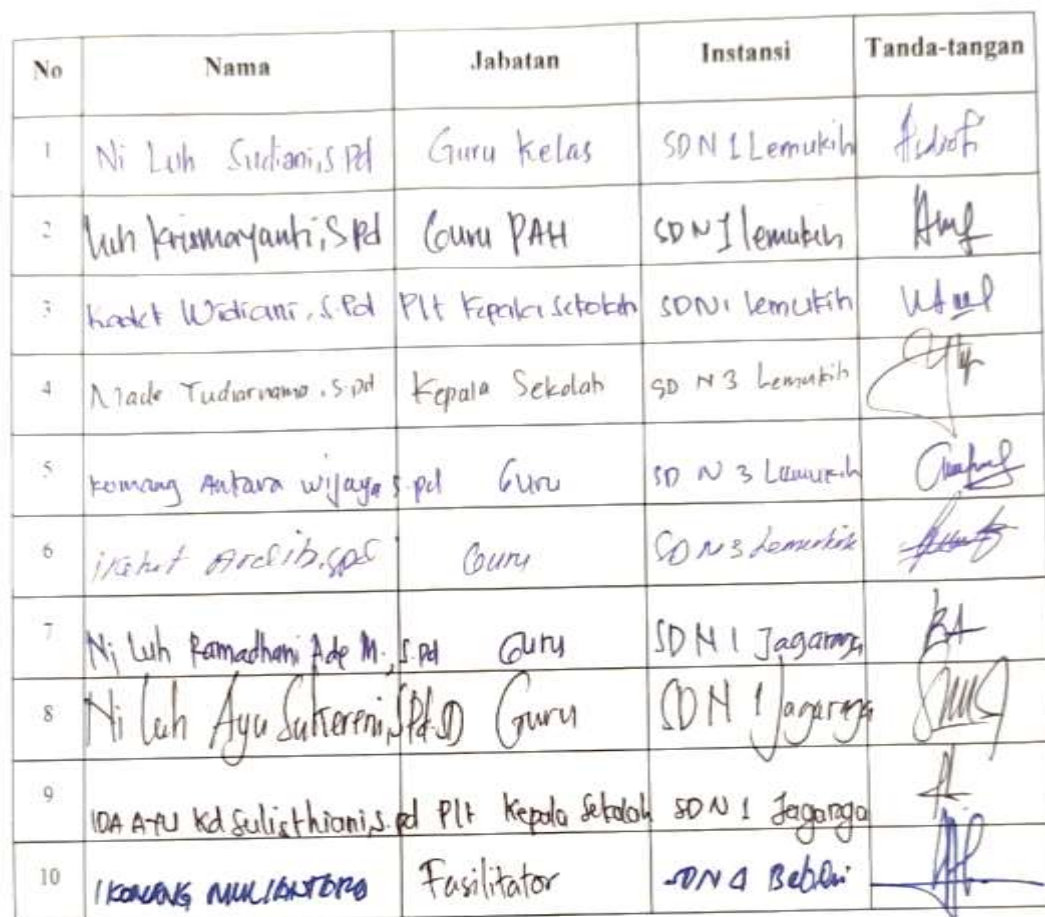 No Nama Jabatan Instansi Tanda-tangan
1 Ni Luh Sudiani, S.Pd Guru Kelas SDN 1 Lemukih
2 Luh Krismayanti, S.Pd Guru PAH SDN 1 lemukih
3 Kadek Widiani, S.Pd Plt Kepala Sekolah SDN 1 lemukih
4 Made Tudiarnama, S.Pd Kepala Sekolah SD N 3 Lemukih
5 Komang Antara Wijaya S.pd Guru SD N 3 Lemukih
6 Guru SD N 3 Lemukih
7 Ni Luh Ramadhani Ade M., S.Pd Guru SD N 1 Jagaraga
8 Ni Luh Ayu Sukereni, S.Pd.SD Guru SD N 1 Jagaraga
9 IDA AYU Kd Sulisthiani, S.pd Plt Kepala Sekolah SD N 1 Jagaraga
10 I KOMANG MULIANTORO Fasilitator SDN 4